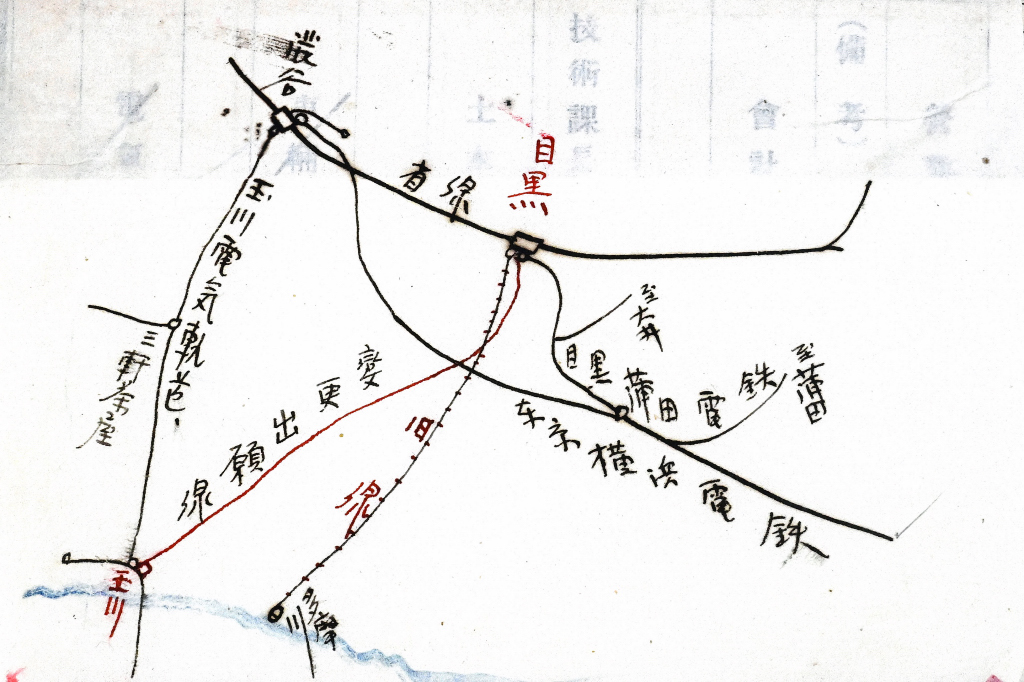 渋谷
目黒
省線
玉川電気軌道
三軒茶屋
至大井
目黒蒲田電鉄
至蒲田
変更出願線
旧線
东京横浜電鉄
玉川
多摩川
技術課長
(備考)
會計
土木